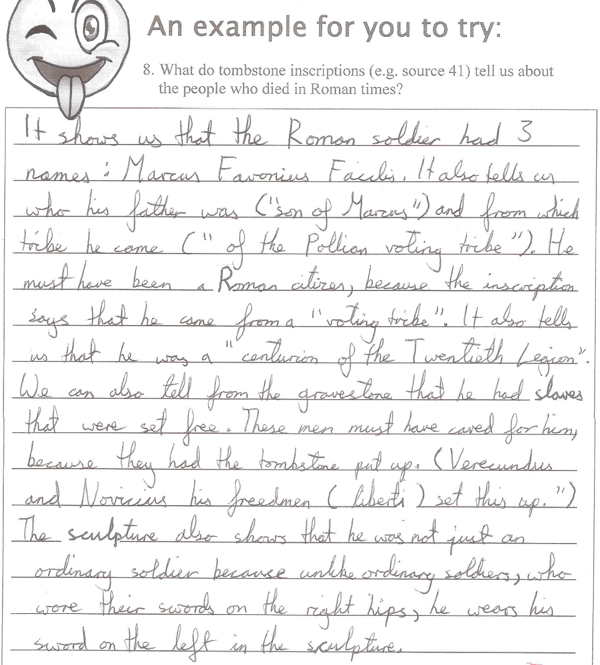 An example for you to try:
8. What do tombstone inscriptions (e.g. source 41) tell us about
the people who died in Roman times?
It shows us that the Roman soldier had 3
names: Marcus Favonius Facilis. It also tells us
who his father was ("son of Marcus") and from which
tribe he came (" of the Pollian voting tribe"). He
must have been a Roman citizen, because the inscription
says that he came from a "voting tribe". It also tells
us that he was a "centurion of the Twentieth Legion".
We can also tell from the gravestone that he had slaves
that were set free. These men must have cared for him,
because they had the tombstone put up. (Verecundus
and Novicius his freedmen (liberti) set this up.")
The sculpture also shows that he was not just an
ordinary soldier because unlike ordinary soldiers, who
wore their swords on the right hips, he wears his
sword on the left in the sculpture.